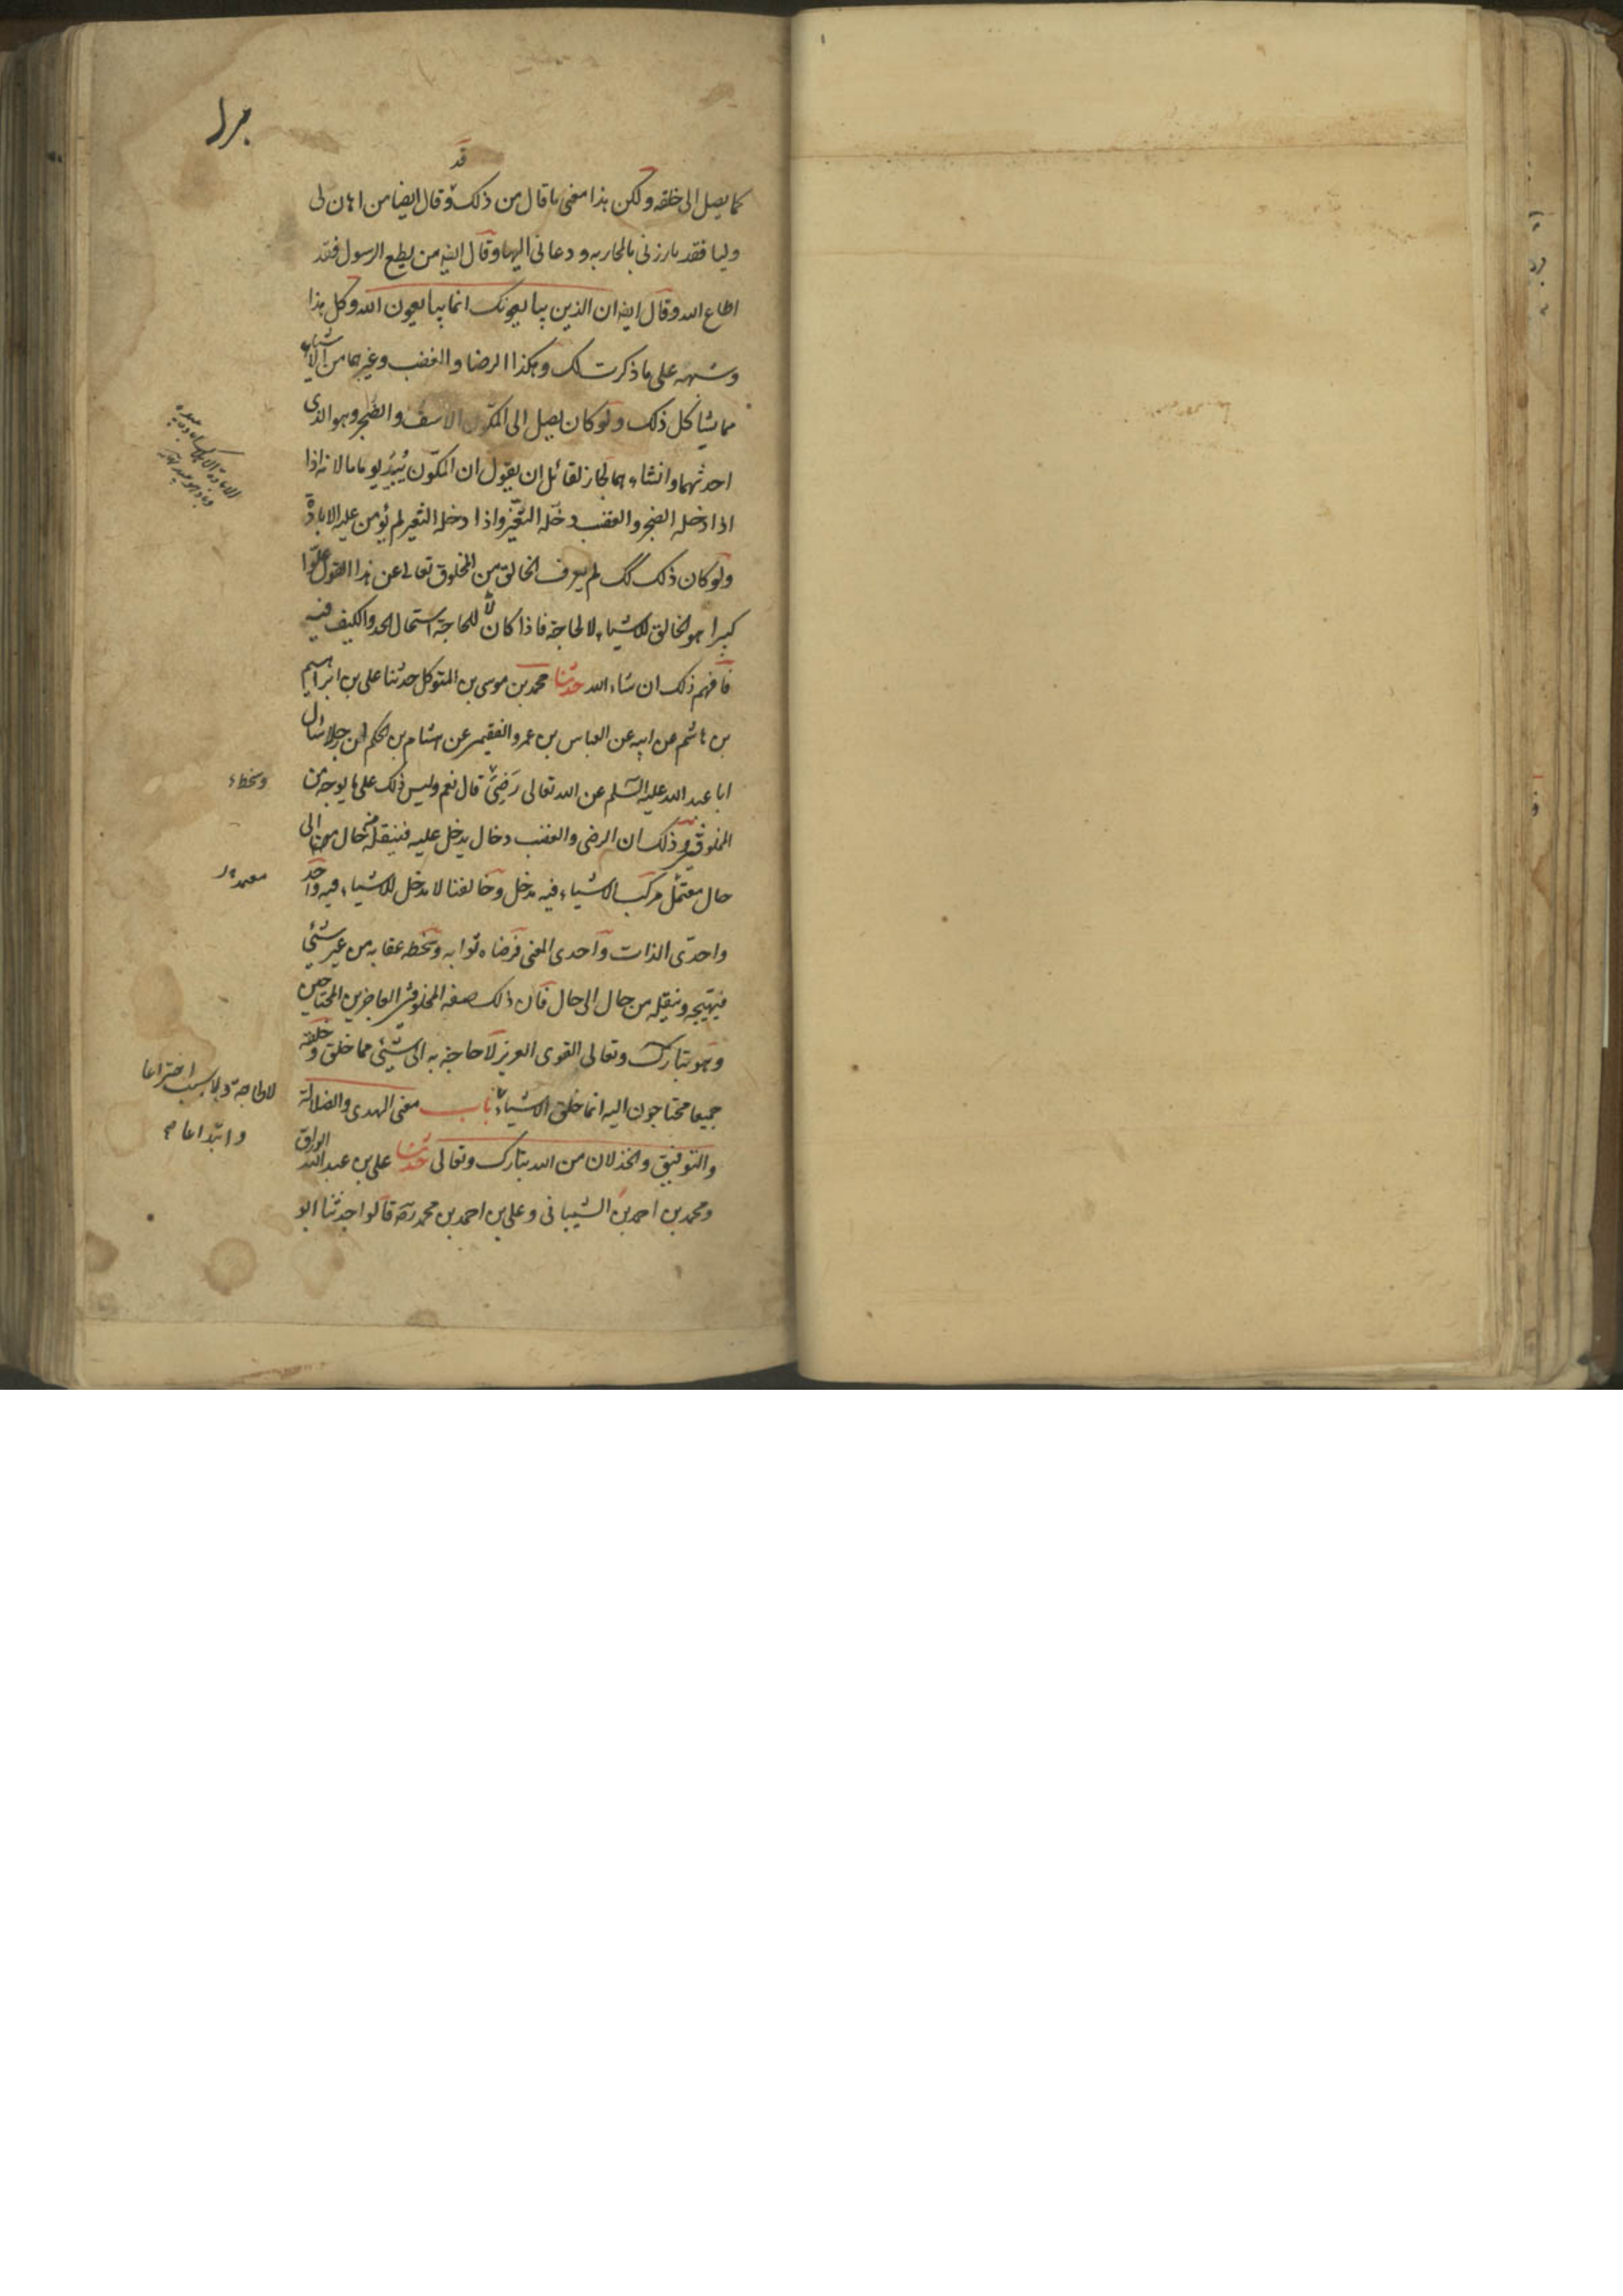 قد
كما يصل الى خلقه ولكن هذا معنى ما قال من ذلك وقال ايضا من اهان لى
وليا فقد بارزنى بالمحاربه ودعانى اليها وقال ايضا من يطع الرسول فقد
اطاع الله وقال ايضا ان الذين يبايعونك انما يبايعون الله وكل هذا
وشبهه على ما ذكرت لك وهكذا الرضا والغضب وغيرهما من الاشياء
مما يشاكل ذلك ولو كان يصل الى المكوّن الاسف والضجر وهو الذى
احدثهما وانشاءهما لجاز لقائل ان يقول ان المكوّن يبيد يوما ما لانه اذا
اذا دخله الضجر والغضب دخله التغيّر واذا دخله التغير لم يؤمن عليه الابادة
ولو كان ذلك كك لم يعرف الخالق من المخلوق تعالى عن هذا القول علوّا
كبيرا هو الخالق للاشياء لا لحاجة فاذا كان لا لحاجة استحال الحد والكيف فيه
فافهم ذلك ان شاء الله حدثنا محمد بن موسى بن المتوكل حدثنا على بن ابراهيم
بن هاشم عن ابيه عن العباس بن عمرو الفقيمى عن هشام بن الحكم ان رجلا سال
ابا عبد الله عليه السلم عن الله تعالى رَضِىَ قال نعم وليس ذلك على ما يوجد من
المخلوقين وذلك ان الرضى والغضب دخال يدخل عليه فينقله من حال الى
حال معتمل مركب للاشياء فيه مدخل وخالقنا لا مدخل للاشياء فيه واحد
واحدى الذات واحدى المعنى فرضاه ثوابه وسخطه عقابه من غير شئ
فيهيجه وينقله من حال الى حال فان ذلك صفة المخلوقين العاجزين المحتاجين
وهو تبارك وتعالى القوى العزيز لا حاجة به الى شئ مما خلق وخلقه
جميعا محتاجون اليه انما خلق الاشياء باب معنى الهدى والضلالة
والتوفيق والخذلان من الله تبارك وتعالى حدثنا على بن عبد الله الوراق
ومحمد بن احمد بن الشيبانى وعلى بن احمد بن محمد رضه قالوا حدثنا ابو
وسخط
لا لحاجة ولا سبب اختراعا
وابتداعا